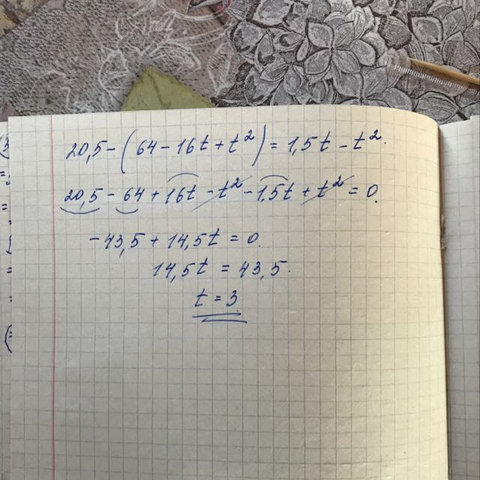 20,5-(64-16t+t²)=1,5t-t².
20,5-64+16t-t²-1,5t+t²=0.
-43,5+14,5t=0.
14,5t=43,5.
t=3